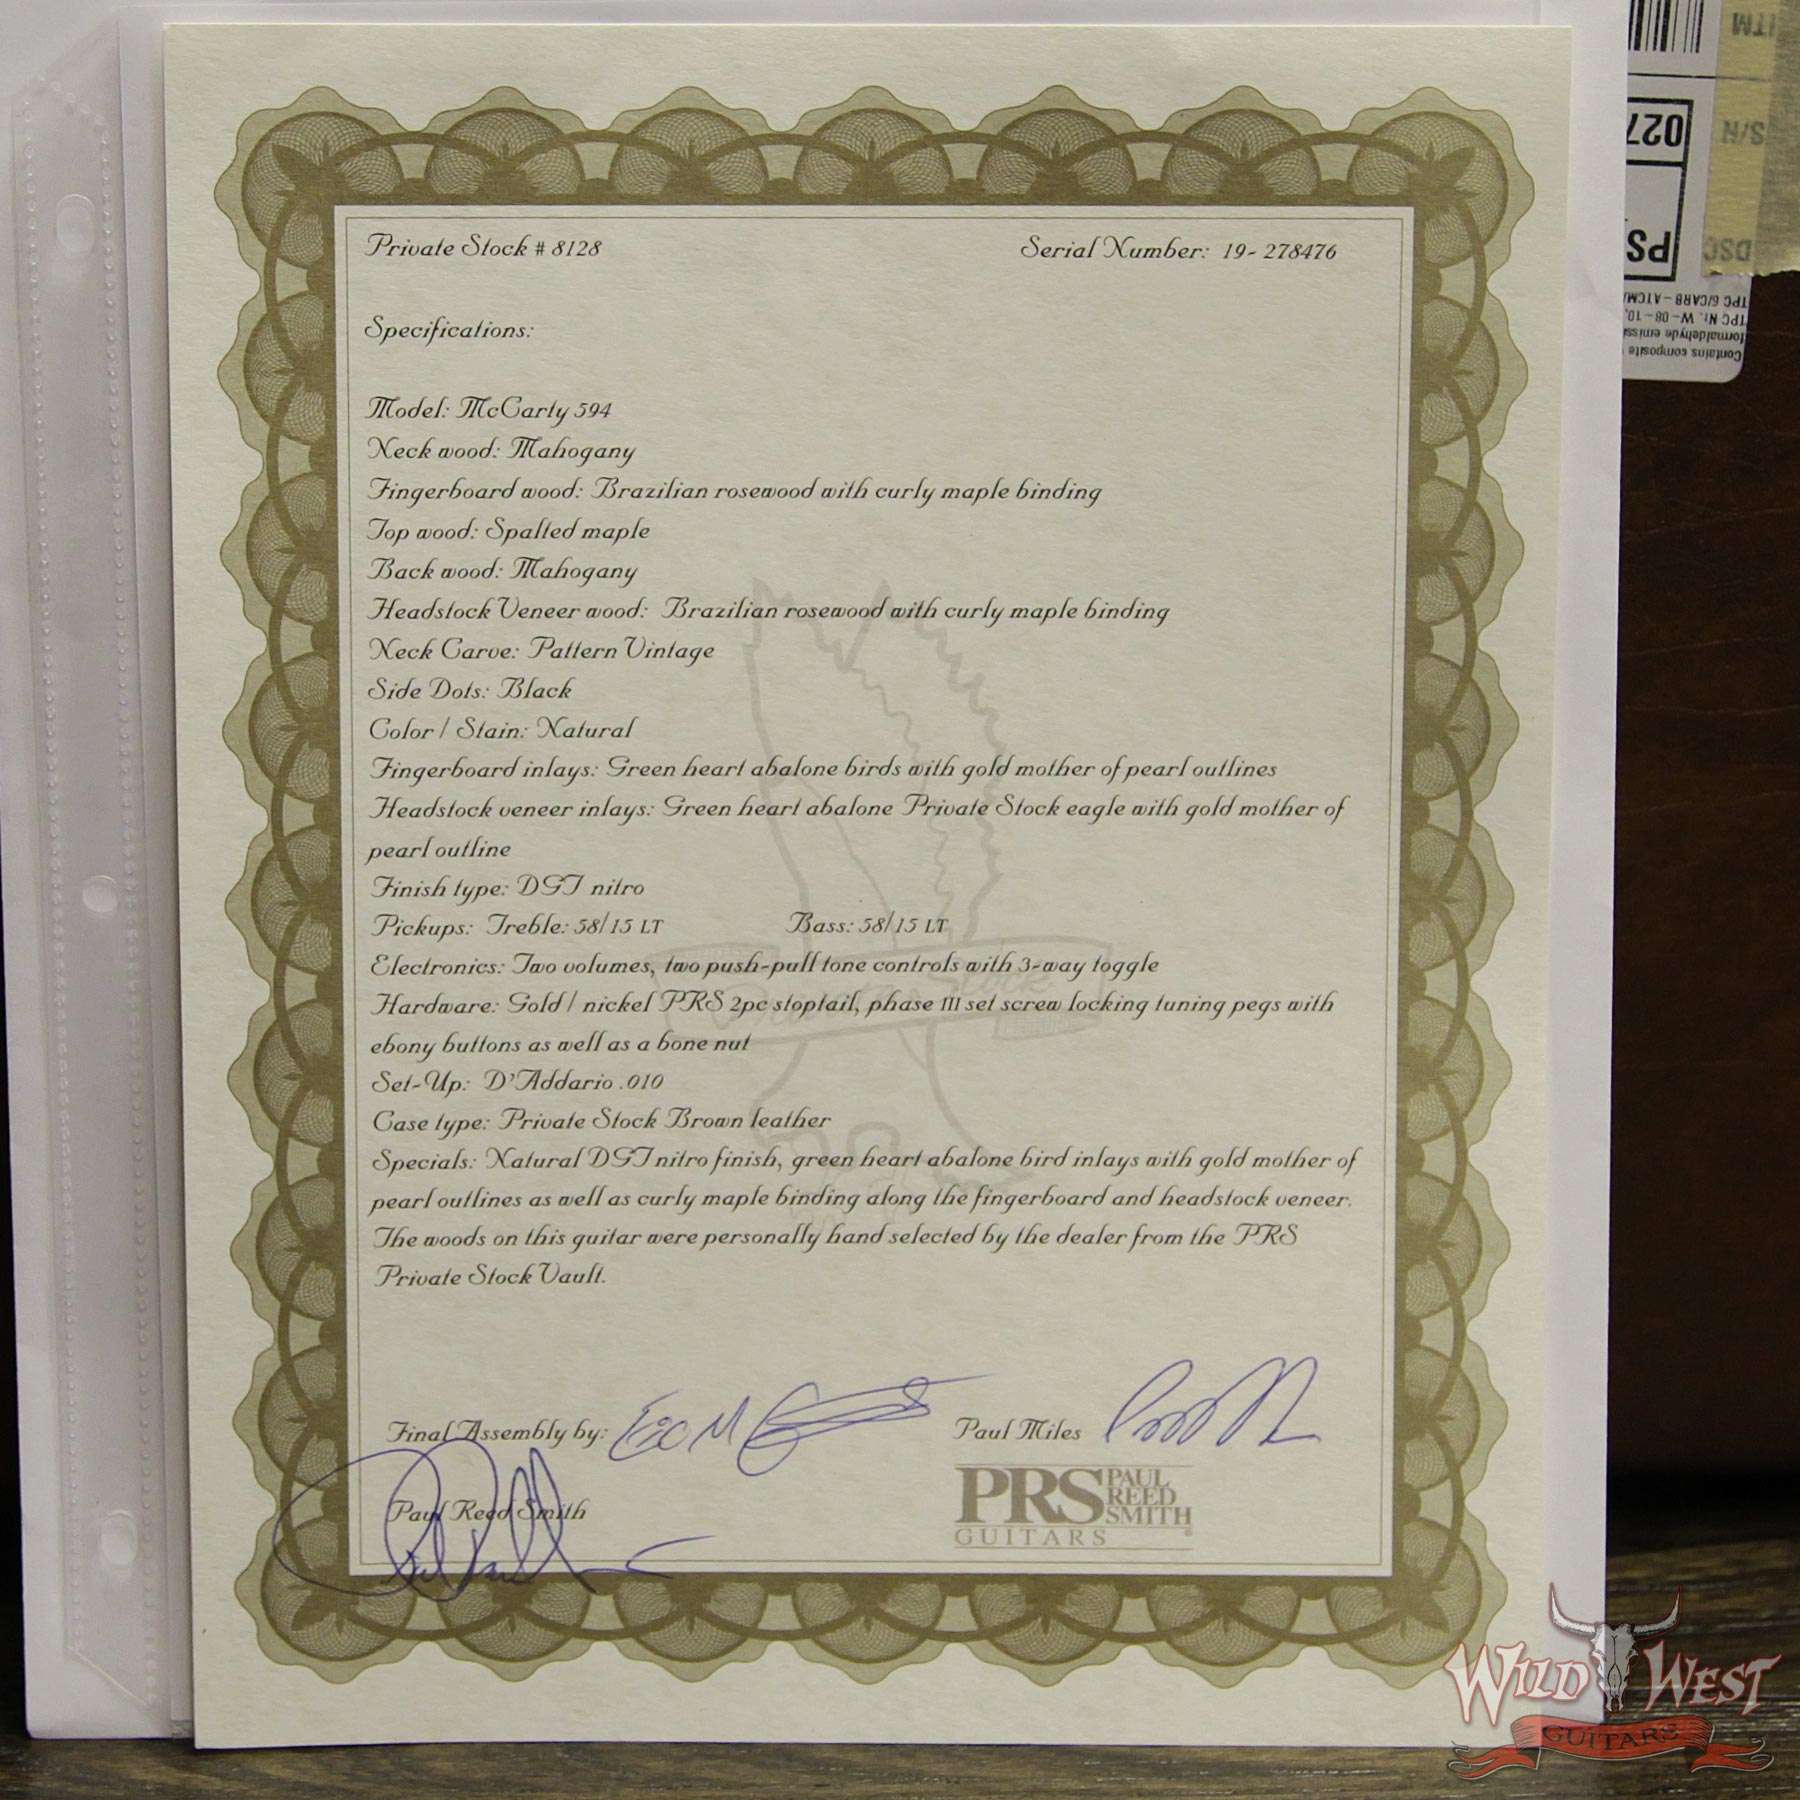 Private Stock # 8128
Serial Number: 19- 278476
Specifications:
Model: McCarty 594
Neck wood: Mahogany
Fingerboard wood: Brazilian rosewood with curly maple binding
Top wood: Spalted maple
Back wood: Mahogany
Headstock Veneer wood: Brazilian rosewood with curly maple binding
Neck Carve: Pattern Vintage
Side Dots: Black
Color / Stain: Natural
Fingerboard inlays: Green heart abalone birds with gold mother of pearl outlines
Headstock veneer inlays: Green heart abalone Private Stock eagle with gold mother of
pearl outline
Finish type: DGT nitro
Pickups: Treble: 58/15 LT Bass: 58/15 LT
Electronics: Two volumes, two push-pull tone controls with 3-way toggle
Hardware: Gold / nickel PRS 2pc stoptail, phase III set screw locking tuning pegs with
ebony buttons as well as a bone nut
Set-Up: D'Addario .010
Case type: Private Stock Brown leather
Specials: Natural DGT nitro finish, green heart abalone bird inlays with gold mother of
pearl outlines as well as curly maple binding along the fingerboard and headstock veneer.
The woods on this guitar were personally hand selected by the dealer from the PRS
Private Stock Vault.
Final Assembly by:
Paul Miles
Paul Reed Smith
PRS PAUL REED SMITH
GUITARS
ITM
S/N
027
DSC
PS
TPC 6/CARB - ATCM
TPC Nr. W - 08 - 10,
formaldehyde
Contains composite
WILD WEST
GUITARS